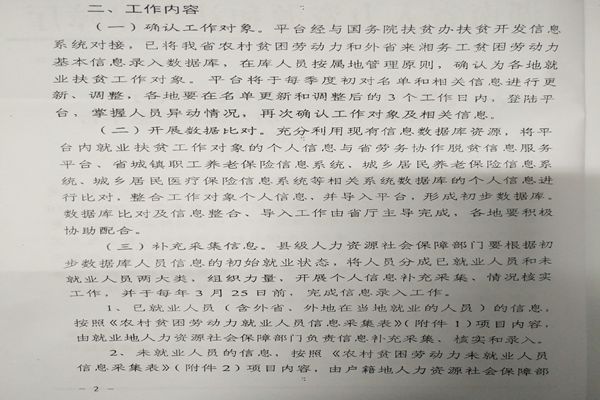 二、工作内容
（一）确认工作对象。平台经与国务院扶贫办扶贫开发信息
系统对接，已将我省农村贫困劳动力和外省来湘务工贫困劳动力
基本信息录入数据库，在库人员按属地管理原则，确认为各地就
业扶贫工作对象。平台将于每季度初对名单和相关信息进行更
新、调整，各地要在名单更新和调整后的3个工作日内，登陆平
台，掌握人员异动情况，再次确认工作对象及相关信息。
（二）开展数据比对。充分利用现有信息数据库资源，将平
台内就业扶贫工作对象的个人信息与省劳务协作脱贫信息服务
平台、省城镇职工养老保险信息系统、城乡居民养老保险信息系
统、城乡居民医疗保险信息系统等相关系统数据库的个人信息进
行比对，整合工作对象个人信息，并导入平台，形成初步数据库。
数据库比对及信息整合、导入工作由省厅主导完成，各地要积极
协助配合。
（三）补充采集信息。县级人力资源社会保障部门要根据初
步数据库人员信息的初始就业状态，将人员分成已就业人员和未
就业人员两大类，组织力量，开展个人信息补充采集、情况核实
工作，并于每年3月25日前，完成信息录入工作。
1、已就业人员（含外省、外地在当地就业的人员）的信息，
按照《农村贫困劳动力就业人员信息采集表》（附件1）项目内容，
由就业地人力资源社会保障部门负责信息补充采集、核实和录入。
2、未就业人员的信息，按照《农村贫困劳动力未就业人员
信息采集表》（附件2）项目内容，由户籍地人力资源社会保障部
－2－